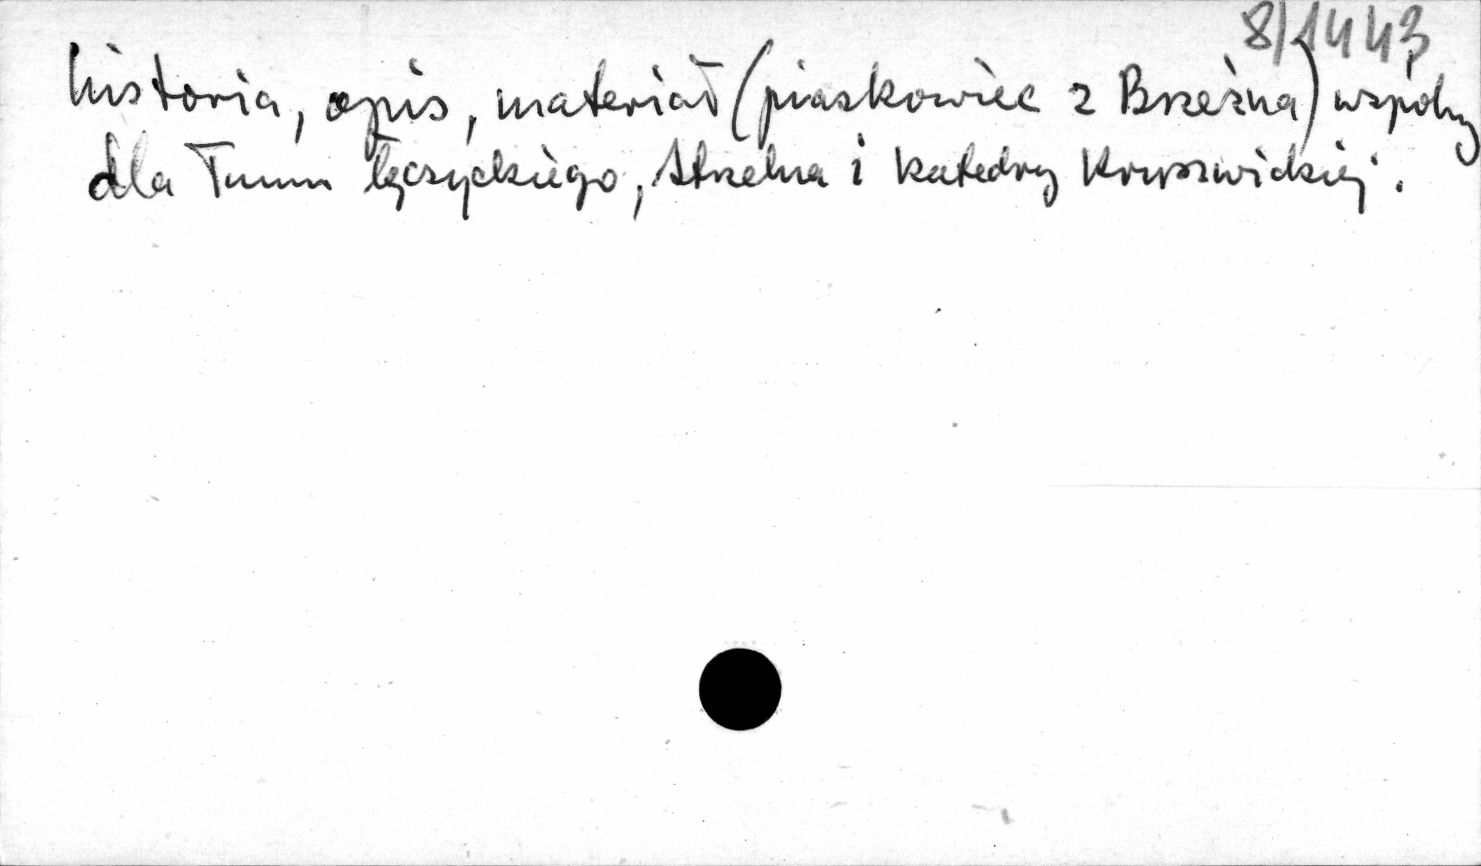 8/1443
historia, opis, materiał (piaskowiec z Brzeźna) wspólny
dla Tumu łęczyckiego, Strzelna i katedry Kruszwickiej.